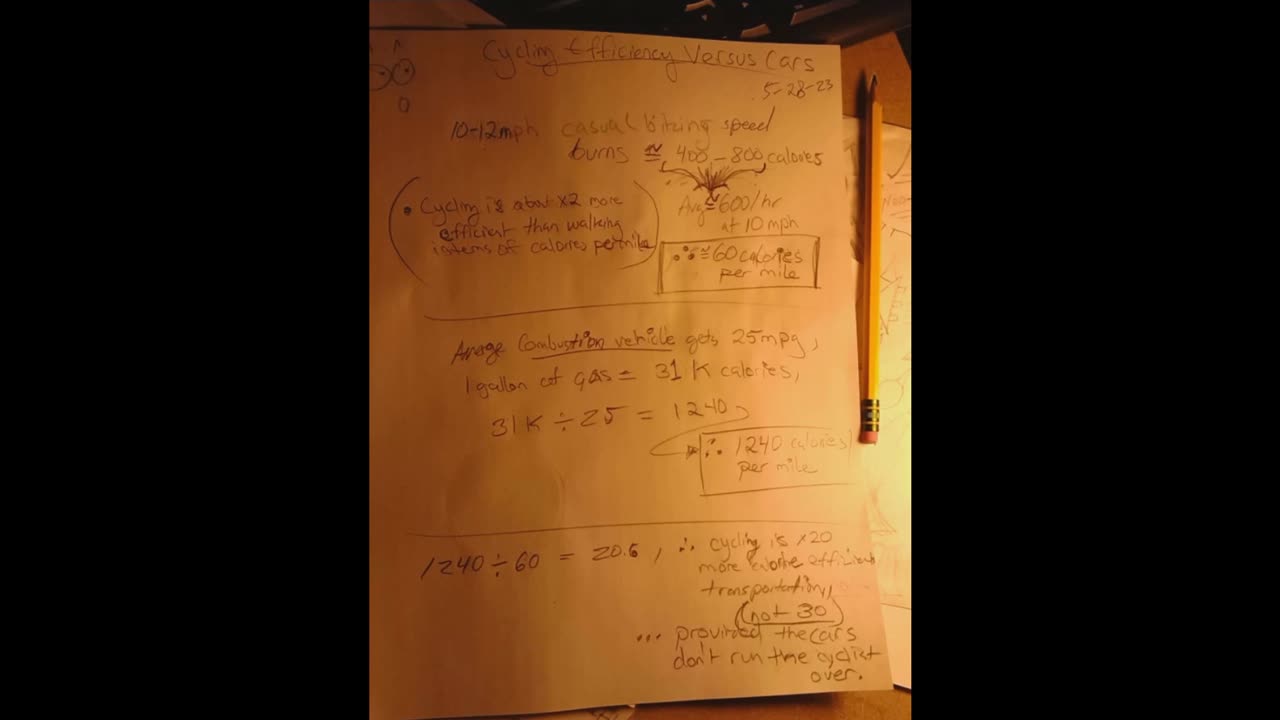 Cycling Efficiency Versus Cars
5-28-23
10-12mph casual biking speed
burns ≅ 400-800 calories
Avg ≅ 600/hr
at 10 mph
∴ ≅ 60 calories
per mile
• Cycling is about x2 more
efficient than walking
in terms of calories per mile
Average Combustion vehicle gets 25mpg,
1 gallon of gas = 31K calories,
31K ÷ 25 = 1240
∴ 1240 calories
per mile
1240 ÷ 60 = 20.6, ∴ cycling is x20
more calorie efficient
transportation,
(not 30)
... provided the cars
don't run the cyclist
over.